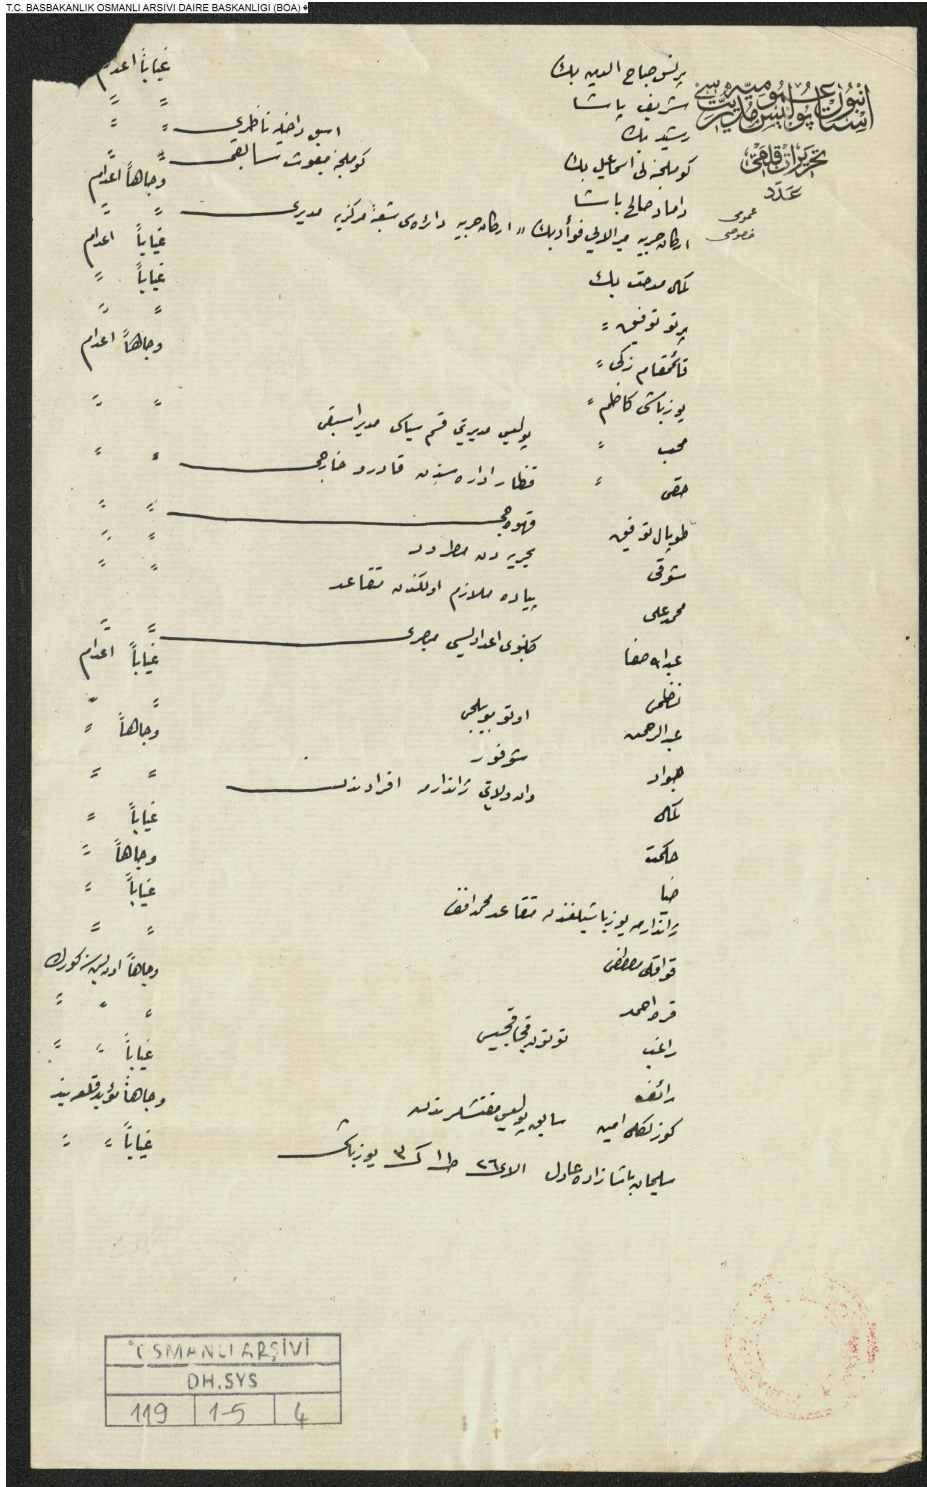 T.C. BASBAKANLIK OSMANLI ARSIVI DAIRE BASKANLIGI (BOA)
استانبول پوليس مديريت عموميه سی
تحريرات قلمی
عدد
عمومی
خصوصی
پرنس صباح الدين بك غياباً اعدام
شريف پاشا 〃 〃
رشيد بك اسبق داخليه ناظری 〃 〃
كوملجنه لی اسماعيل بك كوملجنه مبعوث سابقی 〃 〃
داماد صالح پاشا وجاهاً اعدام
اركان حربيه ميرالای فؤاد بك اركان حربيه دائره سی شعبه مركزيه مديری 〃 〃
كمال مدحت بك غياباً اعدام
پرتو توفيق 〃 غياباً 〃
قائمقام زكی 〃 〃 〃
يوزباشی كاظم 〃 وجاهاً اعدام
محب 〃 پوليس مديريتی قسم سياسی مدير اسبقی 〃 〃
حقی 〃 قطار اداره سندن قادرو خارجی 〃 〃
طوپال توفيق قهوه جی 〃 〃
شوقی بحريه دن مطرود 〃 〃
محمد علی پياده ملازم اولكندن متقاعد 〃 〃
عبدالله صفا كلنبوی اعداديسی مبصری 〃 〃
نظمی غياباً اعدام
عبدالرحمن اوتوموبيلجی 〃 〃
جواد شوفور وجاهاً 〃
كمال وان ولايتی ژاندارمه افرادندن 〃 〃
حكمت غياباً 〃
ضيا وجاهاً 〃
ژاندارمه يوزباشيلغندن متقاعد محمد افندی غياباً 〃
قواقلی مصطفی 〃 〃
قره احمد وجاهاً اون بش سنه كورك
راغب توتون قاچاقجيسی 〃 〃 〃
رائف غياباً 〃 〃
كوزلكلی امين سابق پوليس مفتشلرندن وجاهاً مؤبد قلعه بند
سليمان پاشا زاده عادل الای ٢٦ ط ١ ك ٣ يوزباشی غياباً 〃 〃
OSMANLI ARŞİVİ
DH.SYS
119 1-5 4